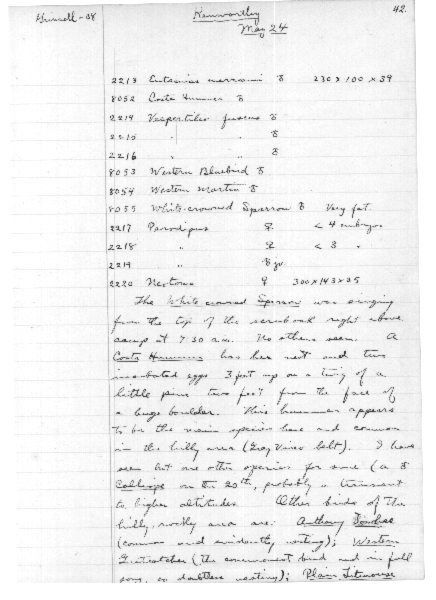 Grinnell-08
Kenworthy
May 24
42.
2213 Eutamias merriami ♂ 230 x 100 x 39
8052 Costa Hummer ♂
2214 Vespertilio fuscus ♂
2215 " " ♂
2216 " " ♂
8053 Western Bluebird ♂
8054 Western Martin ♂
8055 White-crowned Sparrow ♂ Very fat.
2217 Perodipus ♀ < 4 embryos
2218 " ♀ < 3 "
2219 " ♂ yr.
2220 Neotoma ♀ 300 x 143 x 35
The White-crowned Sparrow was singing
from the top of the scrub oak right above
camp at 7:30 a.m. No others seen. A
Costa Hummer has her nest and two
incubated eggs 3 feet up on a twig of a
little pine two feet from the face of
a huge boulder. This hummer appears
to be the main species here and common
in the hilly area (Gray Vireo belt). I have
seen but one other species for sure (a ♂
Calliope on the 20th, probably a transient
to higher altitudes. Other birds of the
hilly, rocky area are: Anthony Towhee
(common and evidently nesting); Western
Gnatcatcher (the commonest bird and in full
song, so doubtless nesting); Plain Titmouse